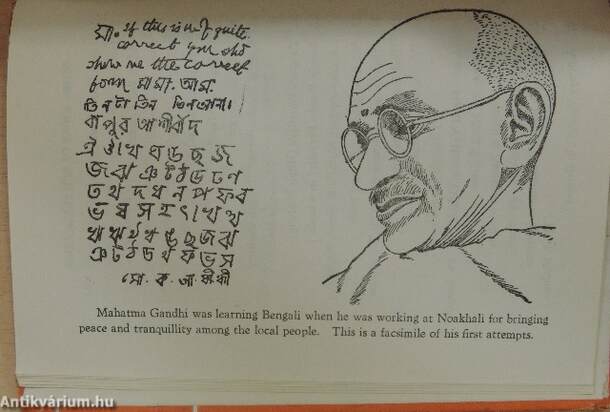 মা. if this is not quite
correct you shd
show me the correct
form মা মা. আম.
তিনটা তিন তিনতালা।
বাপুর আশীর্বাদ
ঐ ঔ খ ঘ ঙ ছ জ
জ ঝ ঞ ট ঠ ড ঢ ণ
ত থ দ ধ ন প ফ ব
ভ ষ স হ ৎ
ঙ ছ জ ঝ
ঞ ট ঠ ড থ ফ ভ স
মো. ক. গাঁধী
Mahatma Gandhi was learning Bengali when he was working at Noakhali for bringing
peace and tranquillity among the local people. This is a facsimile of his first attempts.
Antikvárium.hu